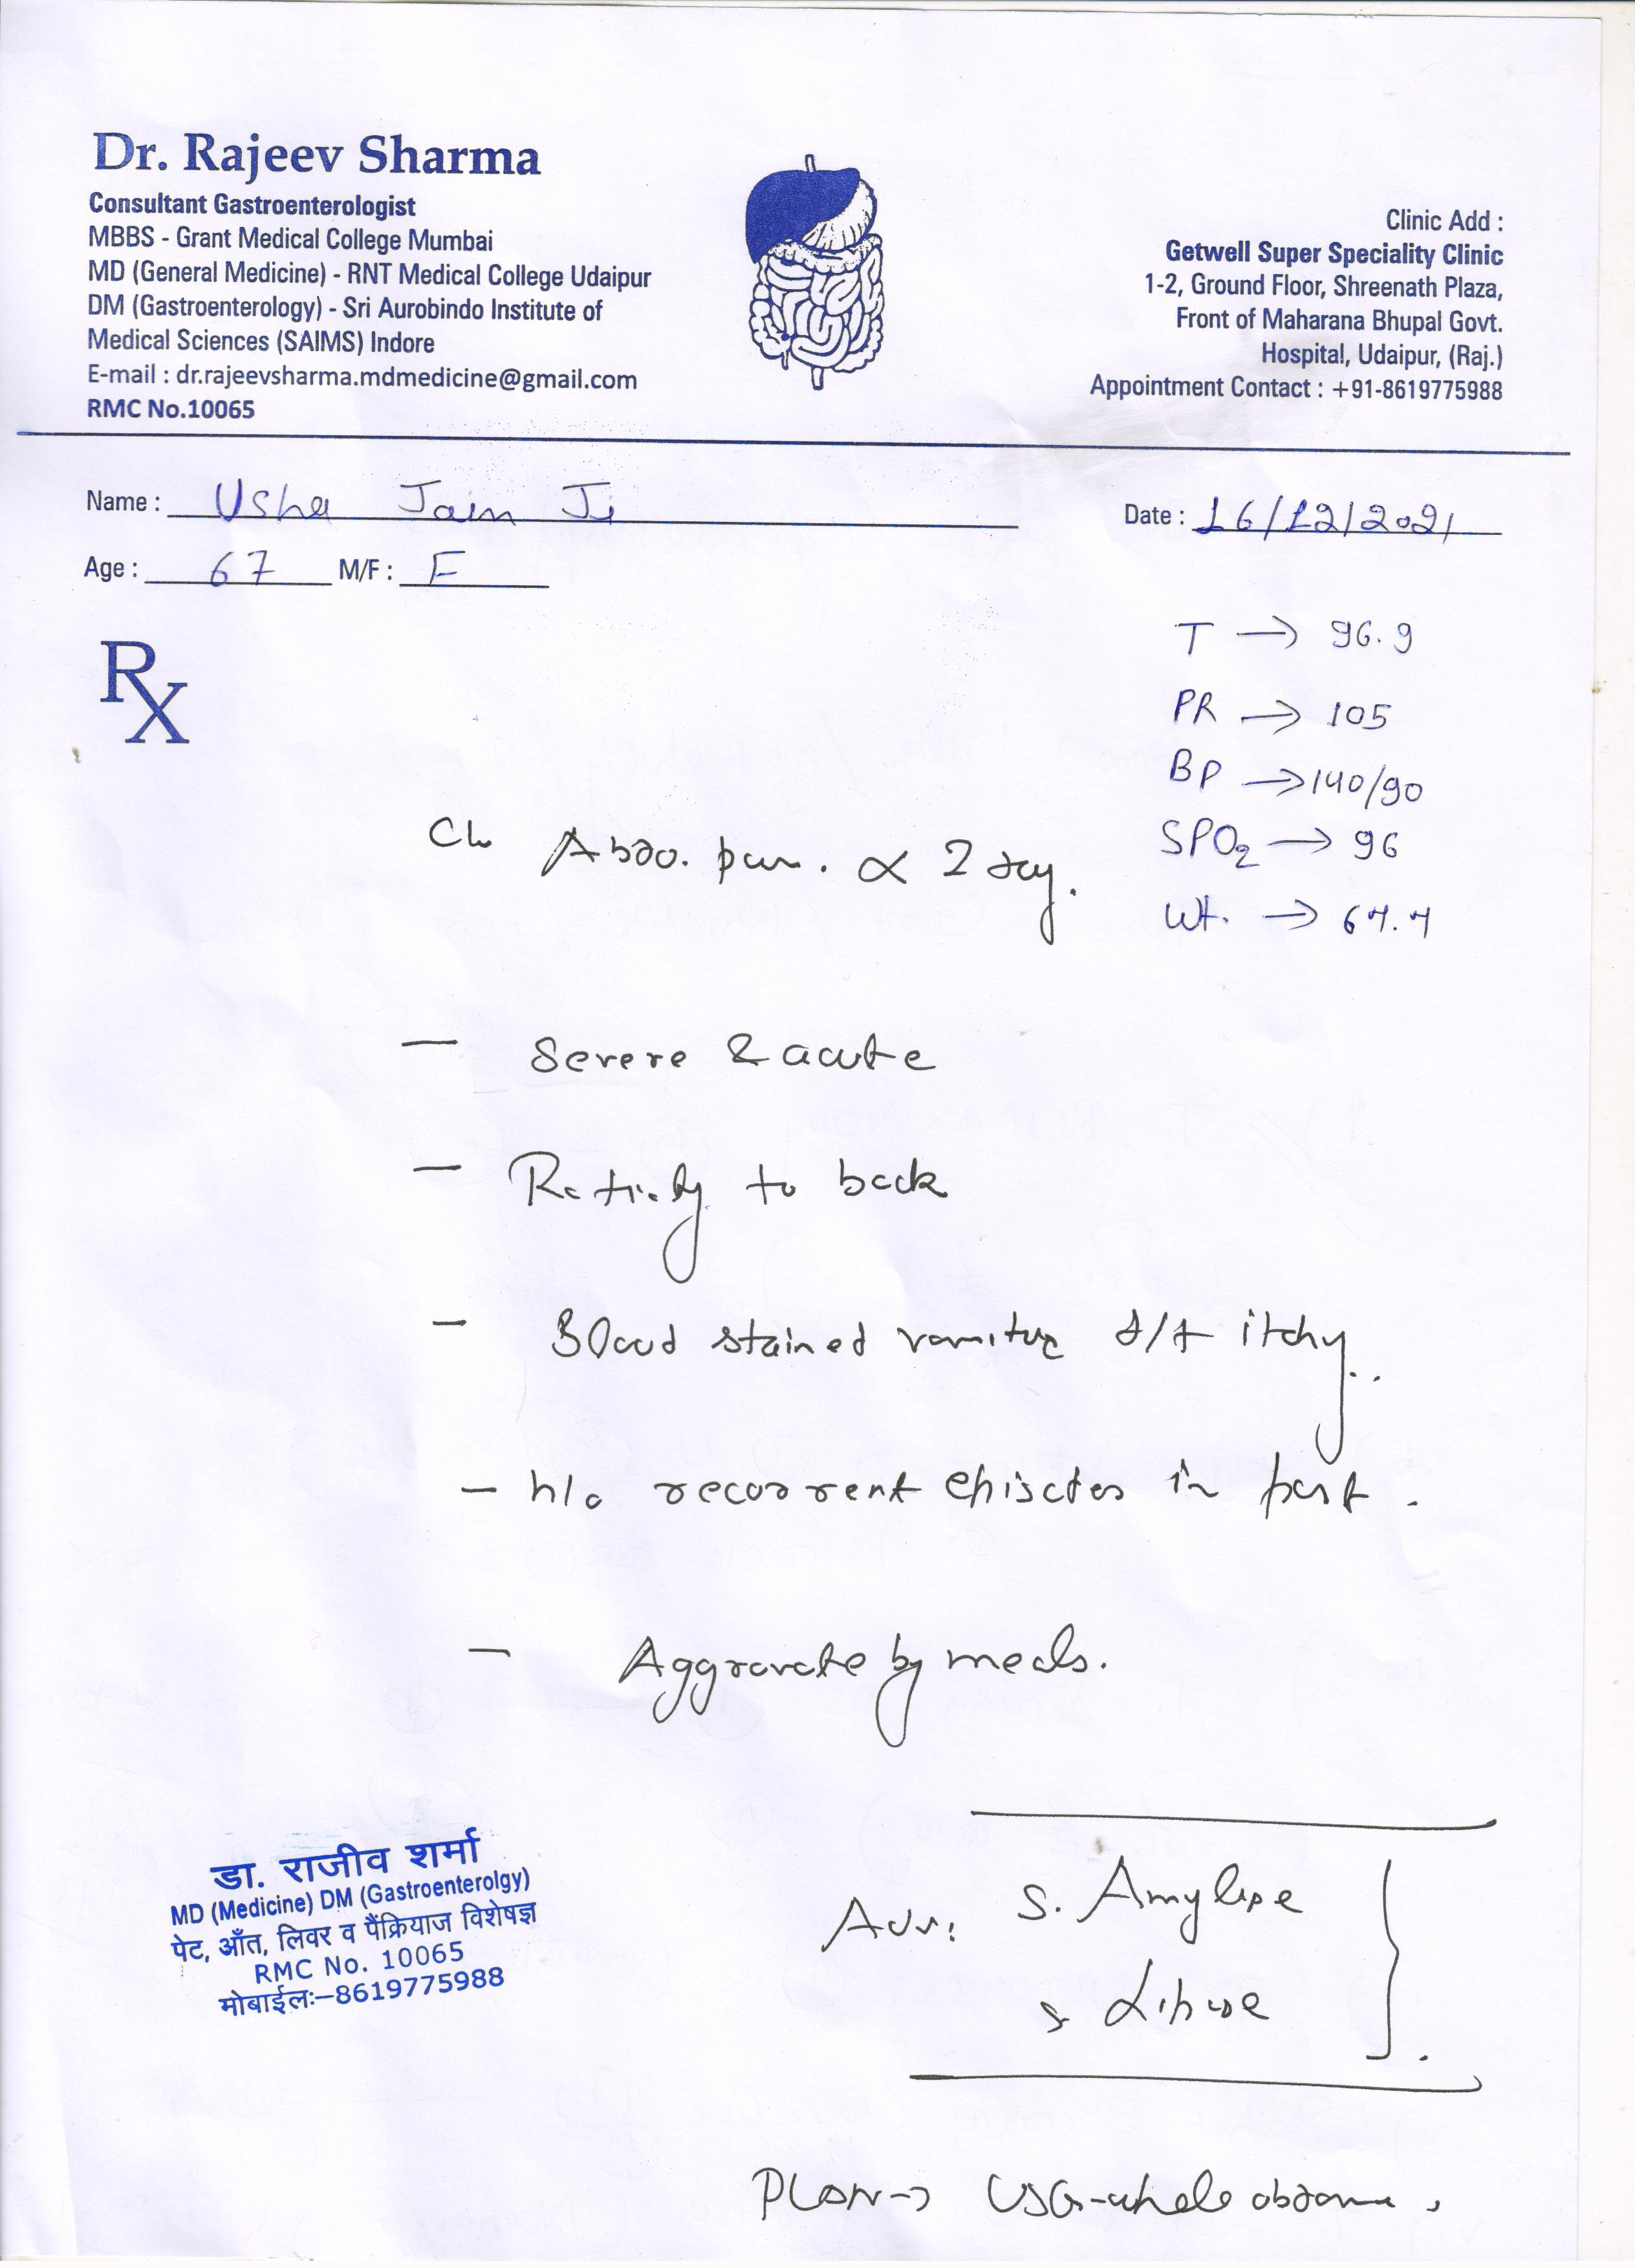 Dr. Rajeev Sharma
Consultant Gastroenterologist
MBBS - Grant Medical College Mumbai
MD (General Medicine) - RNT Medical College Udaipur
DM (Gastroenterology) - Sri Aurobindo Institute of
Medical Sciences (SAIMS) Indore
E-mail : dr.rajeevsharma.mdmedicine@gmail.com
RMC No.10065
Clinic Add :
Getwell Super Speciality Clinic
1-2, Ground Floor, Shreenath Plaza,
Front of Maharana Bhupal Govt.
Hospital, Udaipur, (Raj.)
Appointment Contact : +91-8619775988
Name : Usha Jain Ji
Date : 16/12/2021
Age : 67 M/F : F
Rx
T → 96.9
PR → 105
BP → 140/90
SPO2 → 96
Wt. →
Abdo. pain. 2 day.
— Severe & acute
— to back
— Blood stained vomiting itchy..
— h/o recorrent episodes in past.
— Aggravate by meals.
Adv: S. Amylase
S Lipase
PLAN → USG-whole abdome
डा. राजीव शर्मा
MD (Medicine) DM (Gastroenterolgy)
पेट, आँत, लिवर व पैंक्रियाज विशेषज्ञ
RMC No. 10065
मोबाईलः–8619775988